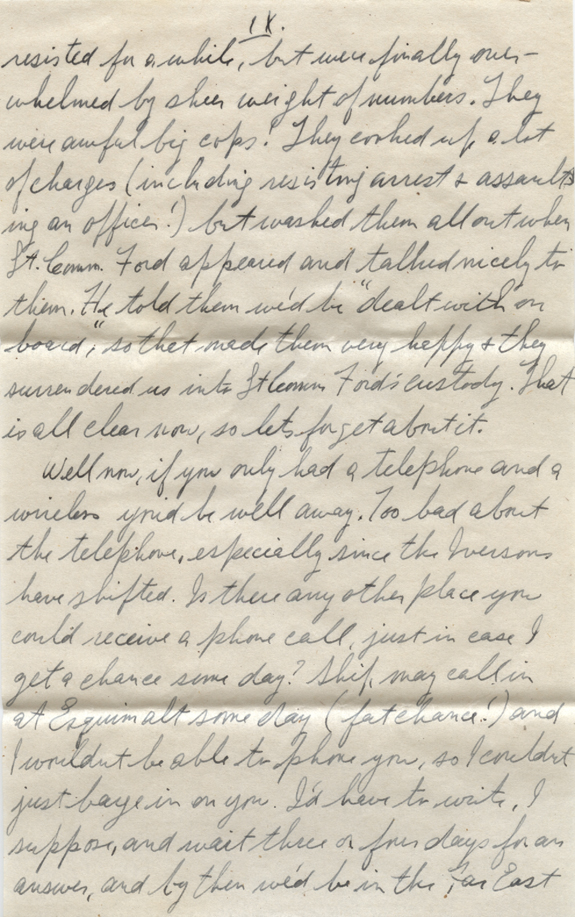 IX.
resisted for a while, but were finally over-
whelmed by sheer weight of numbers. They
were awful big cops! They cooked up a lot
of charges (including resisting arrest & assault-
ing an officer!) but washed them all out when
Lt. Comm. Ford appeared and talked nicely to
them. He told them we'd be "dealt with on
board", so that made them very happy & they
surrendered us into Lt Comm Ford's custody. That
is all clear now, so lets forget about it.
Well now, if you only had a telephone and a
wireless you'd be well away. Too bad about
the telephone, especially since the Iversons
have shifted. Is there any other place you
could receive a phone call, just in case I
get a chance some day? Ship may call in
at Esquimalt some day (fat chance!) and
I wouldn't be able to phone you, so I couldn't
just barge in on you. I'd have to write, I
suppose, and wait three or four days for an
answer, and by then we'd be in the Far East